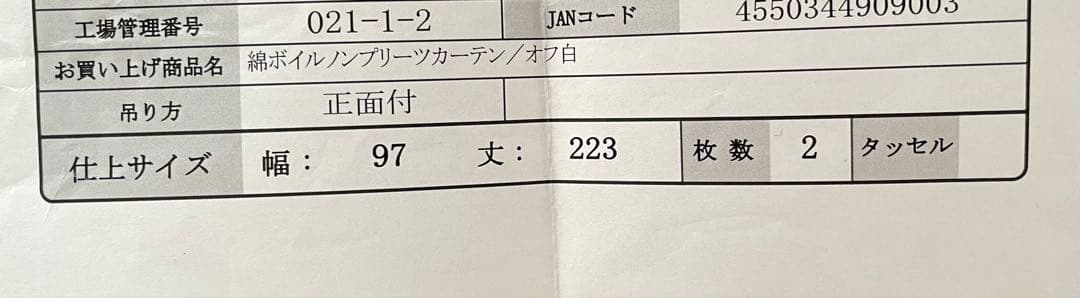 工場管理番号 021-1-2 JANコード 4550344909003
お買い上げ商品名 綿ボイルノンプリーツカーテン／オフ白
吊り方 正面付
仕上サイズ 幅： 97 丈： 223 枚数 2 タッセル